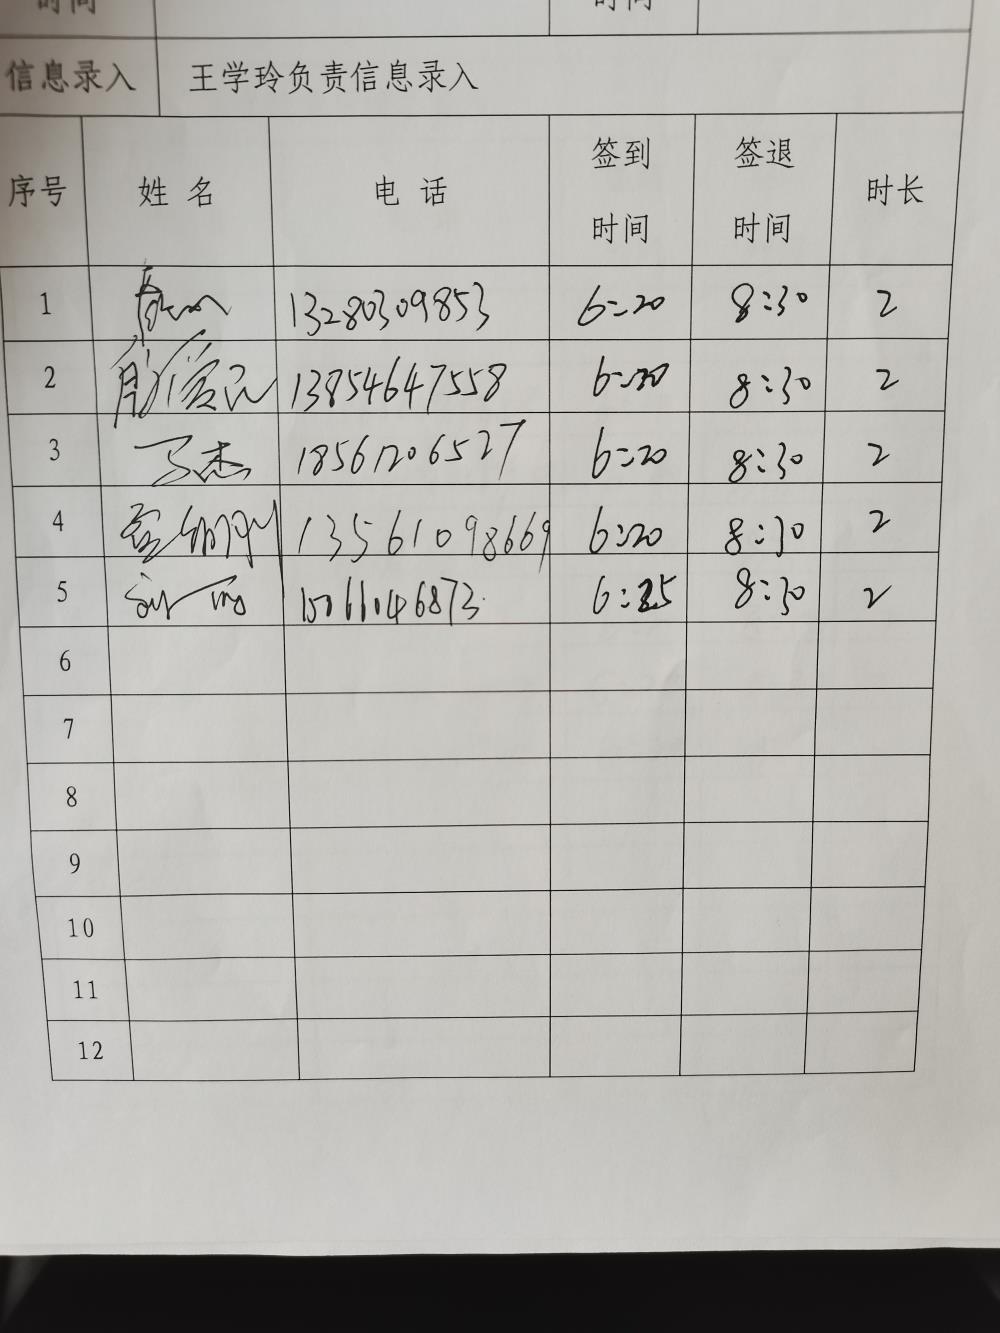 时间 时间
信息录入 王学玲负责信息录入
序号 姓 名 电 话 签到时间 签退时间 时长
1 13280309853 6:20 8:30 2
2 爱民 13854647558 6:20 8:30 2
3 丁杰 18561206527 6:20 8:30 2
4 13561098669 6:20 8:30 2
5 15066046873 6:25 8:30 2
6
7
8
9
10
11
12